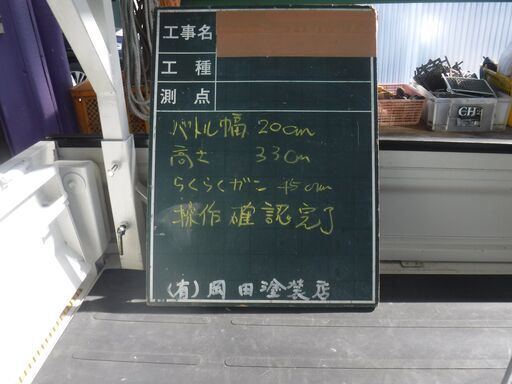 工事名
工種
測点
バトル幅 20cm
高さ 33cm
らくらくガン 45cm
操作確認完了
(有)岡田塗装店
CH